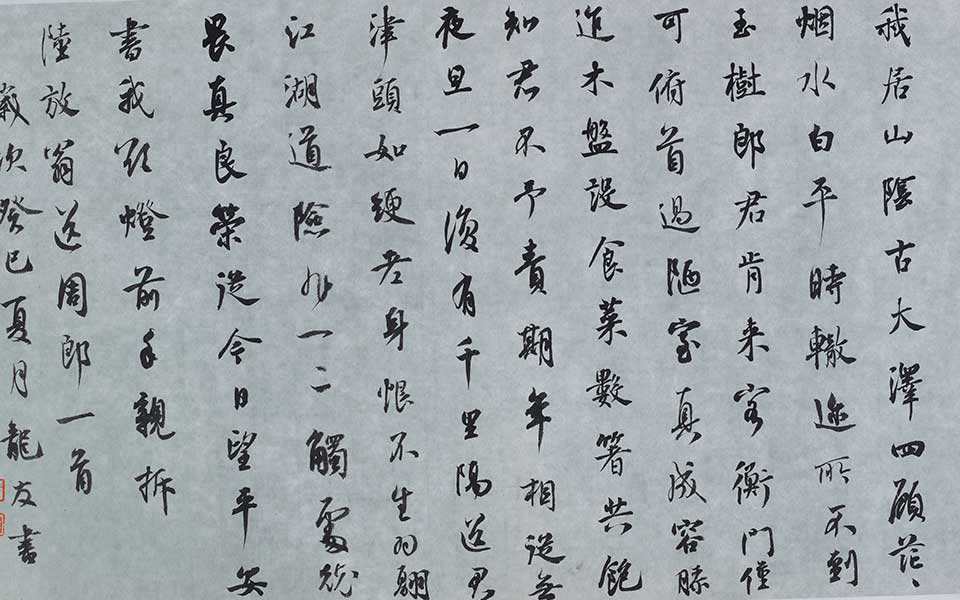 我居山陰古大澤四顧茫〻
烟水白平時轍迹所不到
玉樹郎君肯来客衡門僅
可俯首過陋室真成容膝
進木盤設食菜數箸共飽
知君不予責期年相從無
夜旦一日復有千里隔送君
津頭如綆老身恨不生羽翮
江湖道險非一二觸處兢
畏真良策從今日望平安
書我欲燈前手親拆
陸放翁送周郎一首
歲次癸巳夏月龍友書